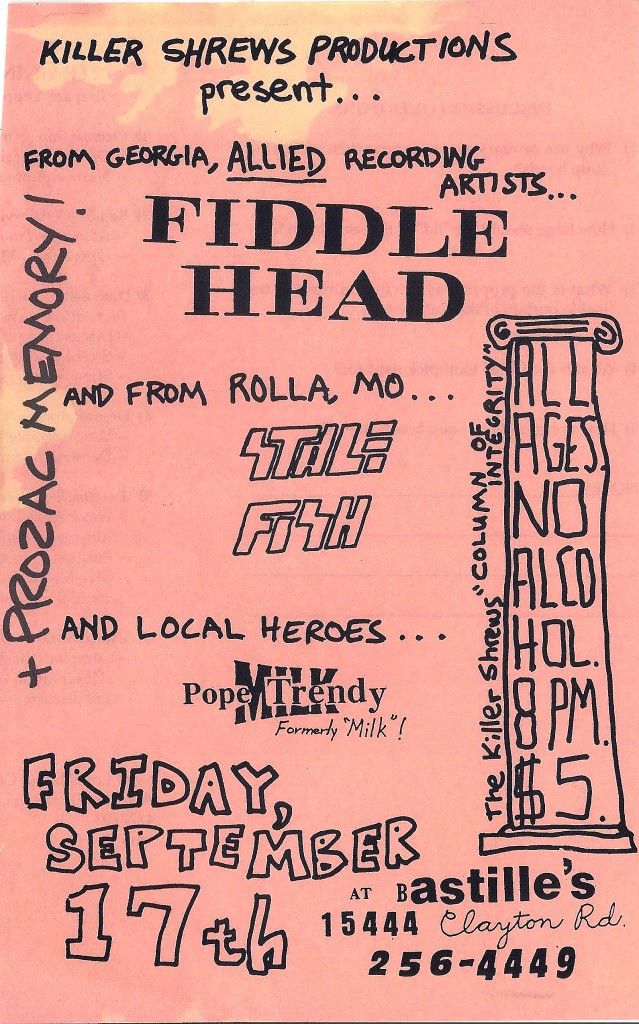 KILLER SHREWS PRODUCTIONS
present...
FROM GEORGIA, ALLIED RECORDING
ARTISTS...
FIDDLE
HEAD
+ PROZAC MEMORY!
AND FROM ROLLA, MO...
STALE
FISH
AND LOCAL HEROES...
Pope MILK Trendy
Formerly "Milk"!
The Killer Shrews "COLUMN OF
INTEGRITY"
ALL
AGES.
NO
ALCO
HOL.
8 PM.
$5.
FRIDAY,
SEPTEMBER
17th
AT Bastille's
15444 Clayton Rd.
256-4449